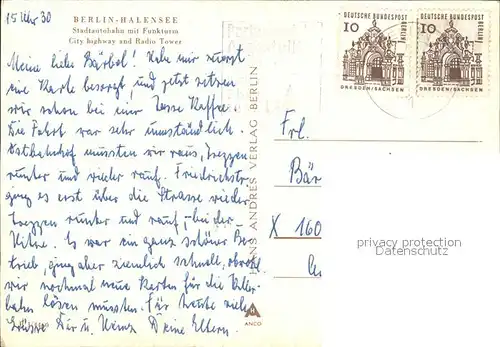 15 Uhr 30
BERLIN-HALENSEE
Stadtautobahn mit Funkturm
City highway and Radio Tower
Meine liebe Bärbel! Habe mir zuerst
eine Karte besorgt und jetzt sitzen
wir schon bei einer Tasse Kaffee.
Die Fahrt war sehr umständlich.
Ostbahnhof mussten wir raus, Treppen
runter und wieder rauf. Friedrichstr.
ging es erst über die Strasse wieder
Treppen runter und rauf, bei der
Hitze. Es war ein ganz schöner Be-
trieb, ging aber ziemlich schnell, obwohl
wir nochmal neue Karten für die
bahn lösen mussten. Für heute viele
Grüsse Dir u. Heinz Deine Eltern.
HANS ANDRES VERLAG BERLIN
ANCO
DEUTSCHE BUNDESPOST
BERLIN
10
DRESDEN/SACHSEN
DEUTSCHE BUNDESPOST
BERLIN
10
DRESDEN/SACHSEN
Frl.
Bär
X 160
privacy protection
Datenschutz